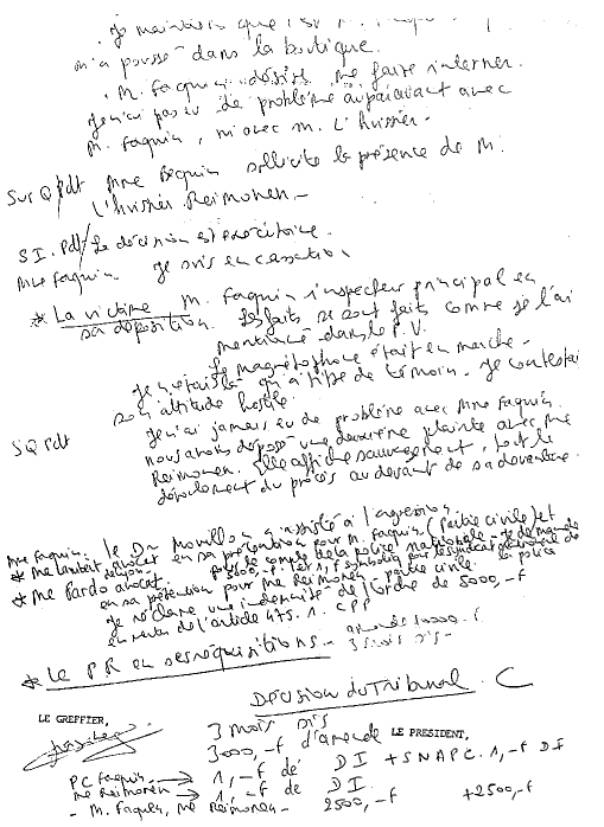 . Je maintiens que
m'a poussé dans la boutique.
. M. Faquin désire me faire interner.
Je n'ai pas eu de problème auparavant avec
M. Faquin, ni avec M. L'huissier.
Sur Q/pdt Mme Faquin sollicite la présence de M.
L'huissier Reimonen -
S.I. Pdt/ La décision est exécutoire.
Mme Faquin. Je suis en cassation
* La victime M. Faquin inspecteur principal en
sa déposition. Les faits se sont faits comme je l'ai
mentionné dans le P.V.
Le magnétophone était en marche -
Je n'étais là qu'à titre de témoin. Je contestai
son attitude hostile.
SQ Pdt Je n'ai jamais eu de problème avec Mme Faquin.
nous avons déposé une deuxième plainte avec Me
Reimonen. Elle affiche sauvagement, tout le
déroulement du procès au devant de sa devanture.
Mme Faquin. le Dr Movillon a assisté à l'agression
* Me Lambert, avocat en sa prétention pour M. Faquin (partie civile) et
pour le compte de la police nationale - je demande
5000,-F et 1,-F symbolique pour le syndicat de la police
* Me Pardo avocat
en sa prétention pour Me Reimonen partie civile.
Je réclame une indemnité de l'ordre de 5000,-F
en vertu de l'article 475.1. CPP
* Le PR en ses réquisitions - amende 10000.F
3 mois sis -
Décision du Tribunal. C
LE GREFFIER,
3 mois sis
3000,-F d'amende LE PRESIDENT,
PC Faquin → 1,-F de DI + SNAPC. 1,-F DI
Me Reimonen → 1,-F de DI.
- M. Faquin, Me Reimonen - 2500,-F +2500,-F